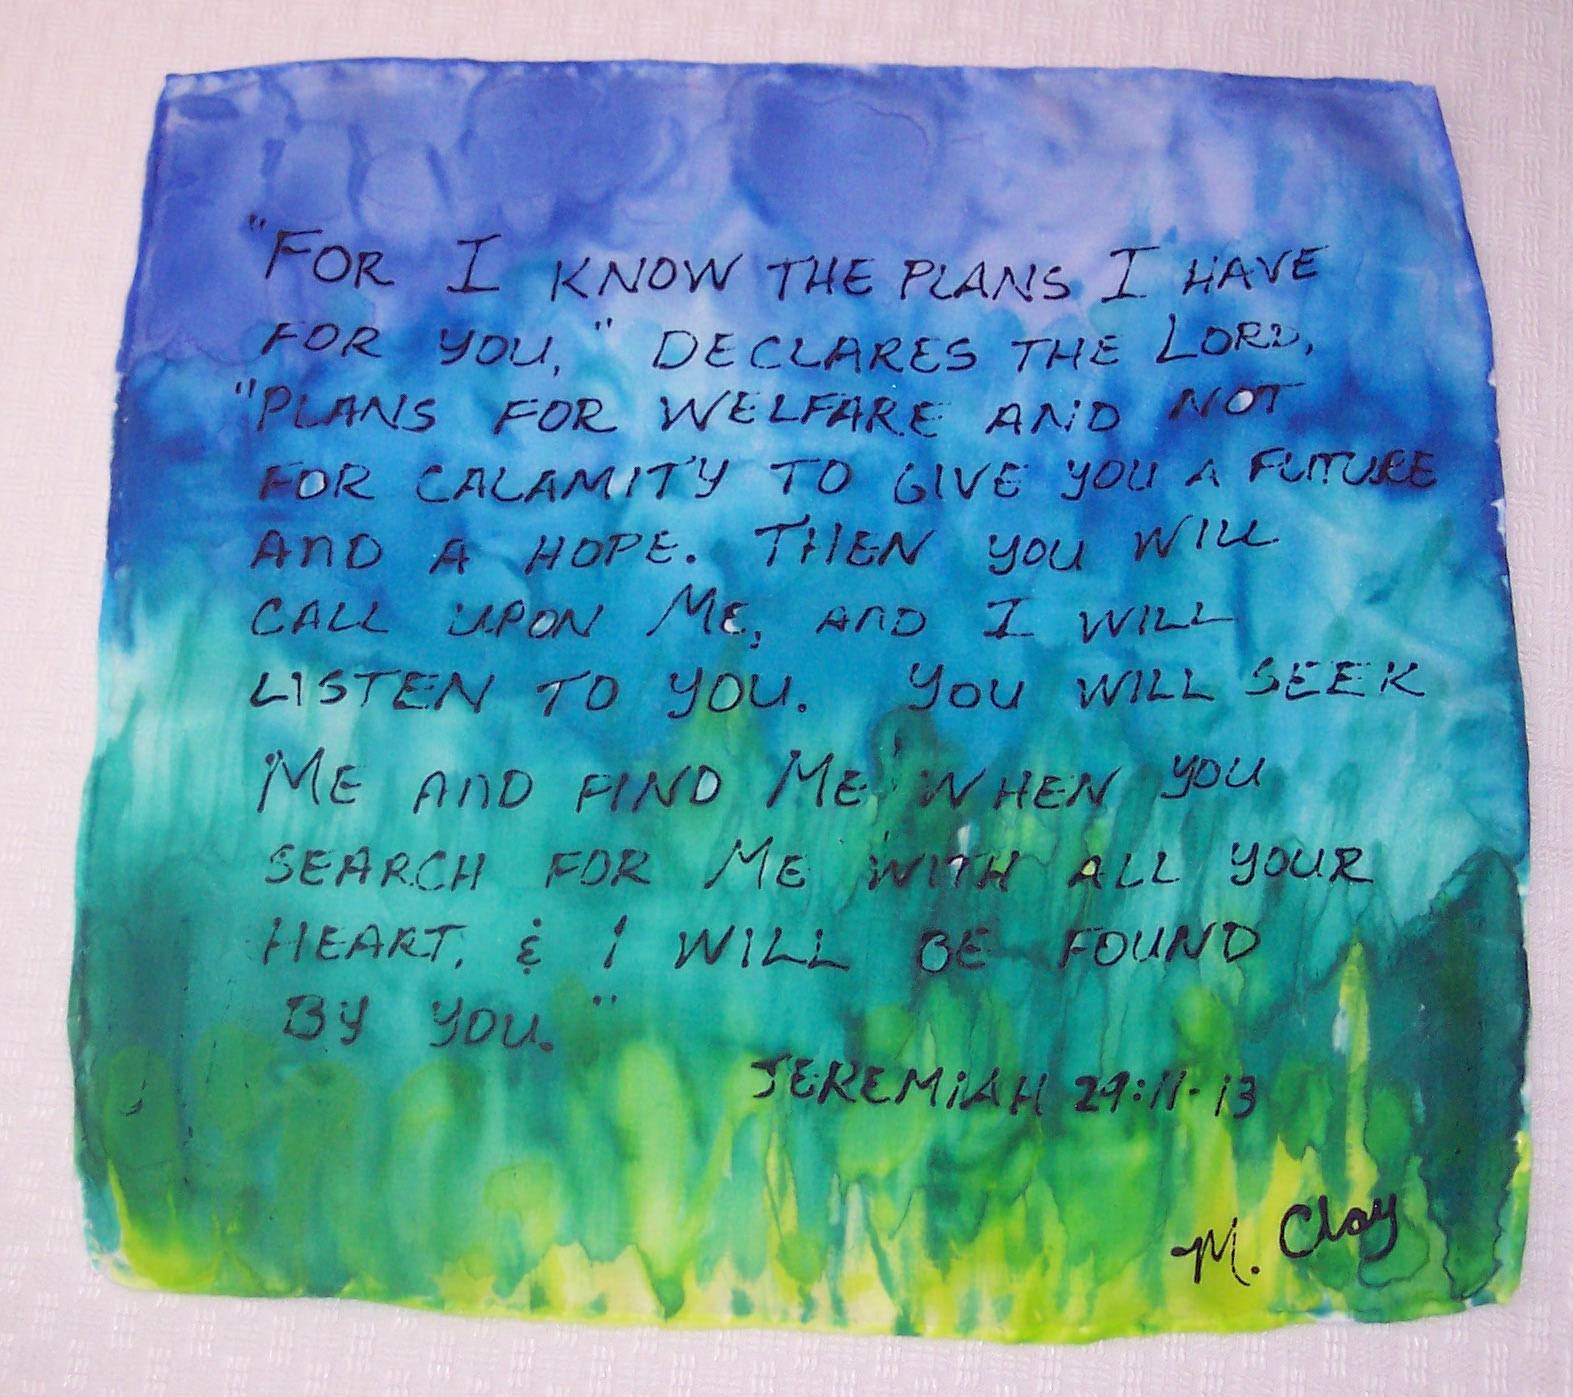 "FOR I KNOW THE PLANS I HAVE
FOR YOU," DECLARES THE LORD,
"PLANS FOR WELFARE AND NOT
FOR CALAMITY TO GIVE YOU A FUTURE
AND A HOPE. THEN YOU WILL
CALL UPON ME, AND I WILL
LISTEN TO YOU. YOU WILL SEEK
ME AND FIND ME WHEN YOU
SEARCH FOR ME WITH ALL YOUR
HEART. & I WILL BE FOUND
BY YOU."
JEREMIAH 29:11-13
M. Clay